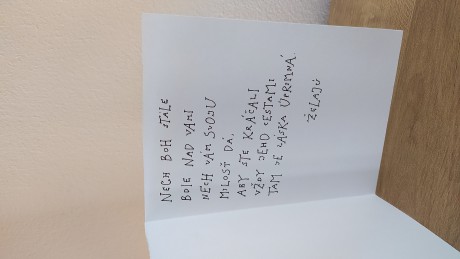 NECH BOH STÁLE
BDIE NAD VAMI
NECH VÁM SVOJU
MILOSŤ DÁ,
ABY STE KRÁČALI
VŽDY JEHO CESTAMI
TAM JE LÁSKA ÚPRIMNÁ
ŽELAJÚ